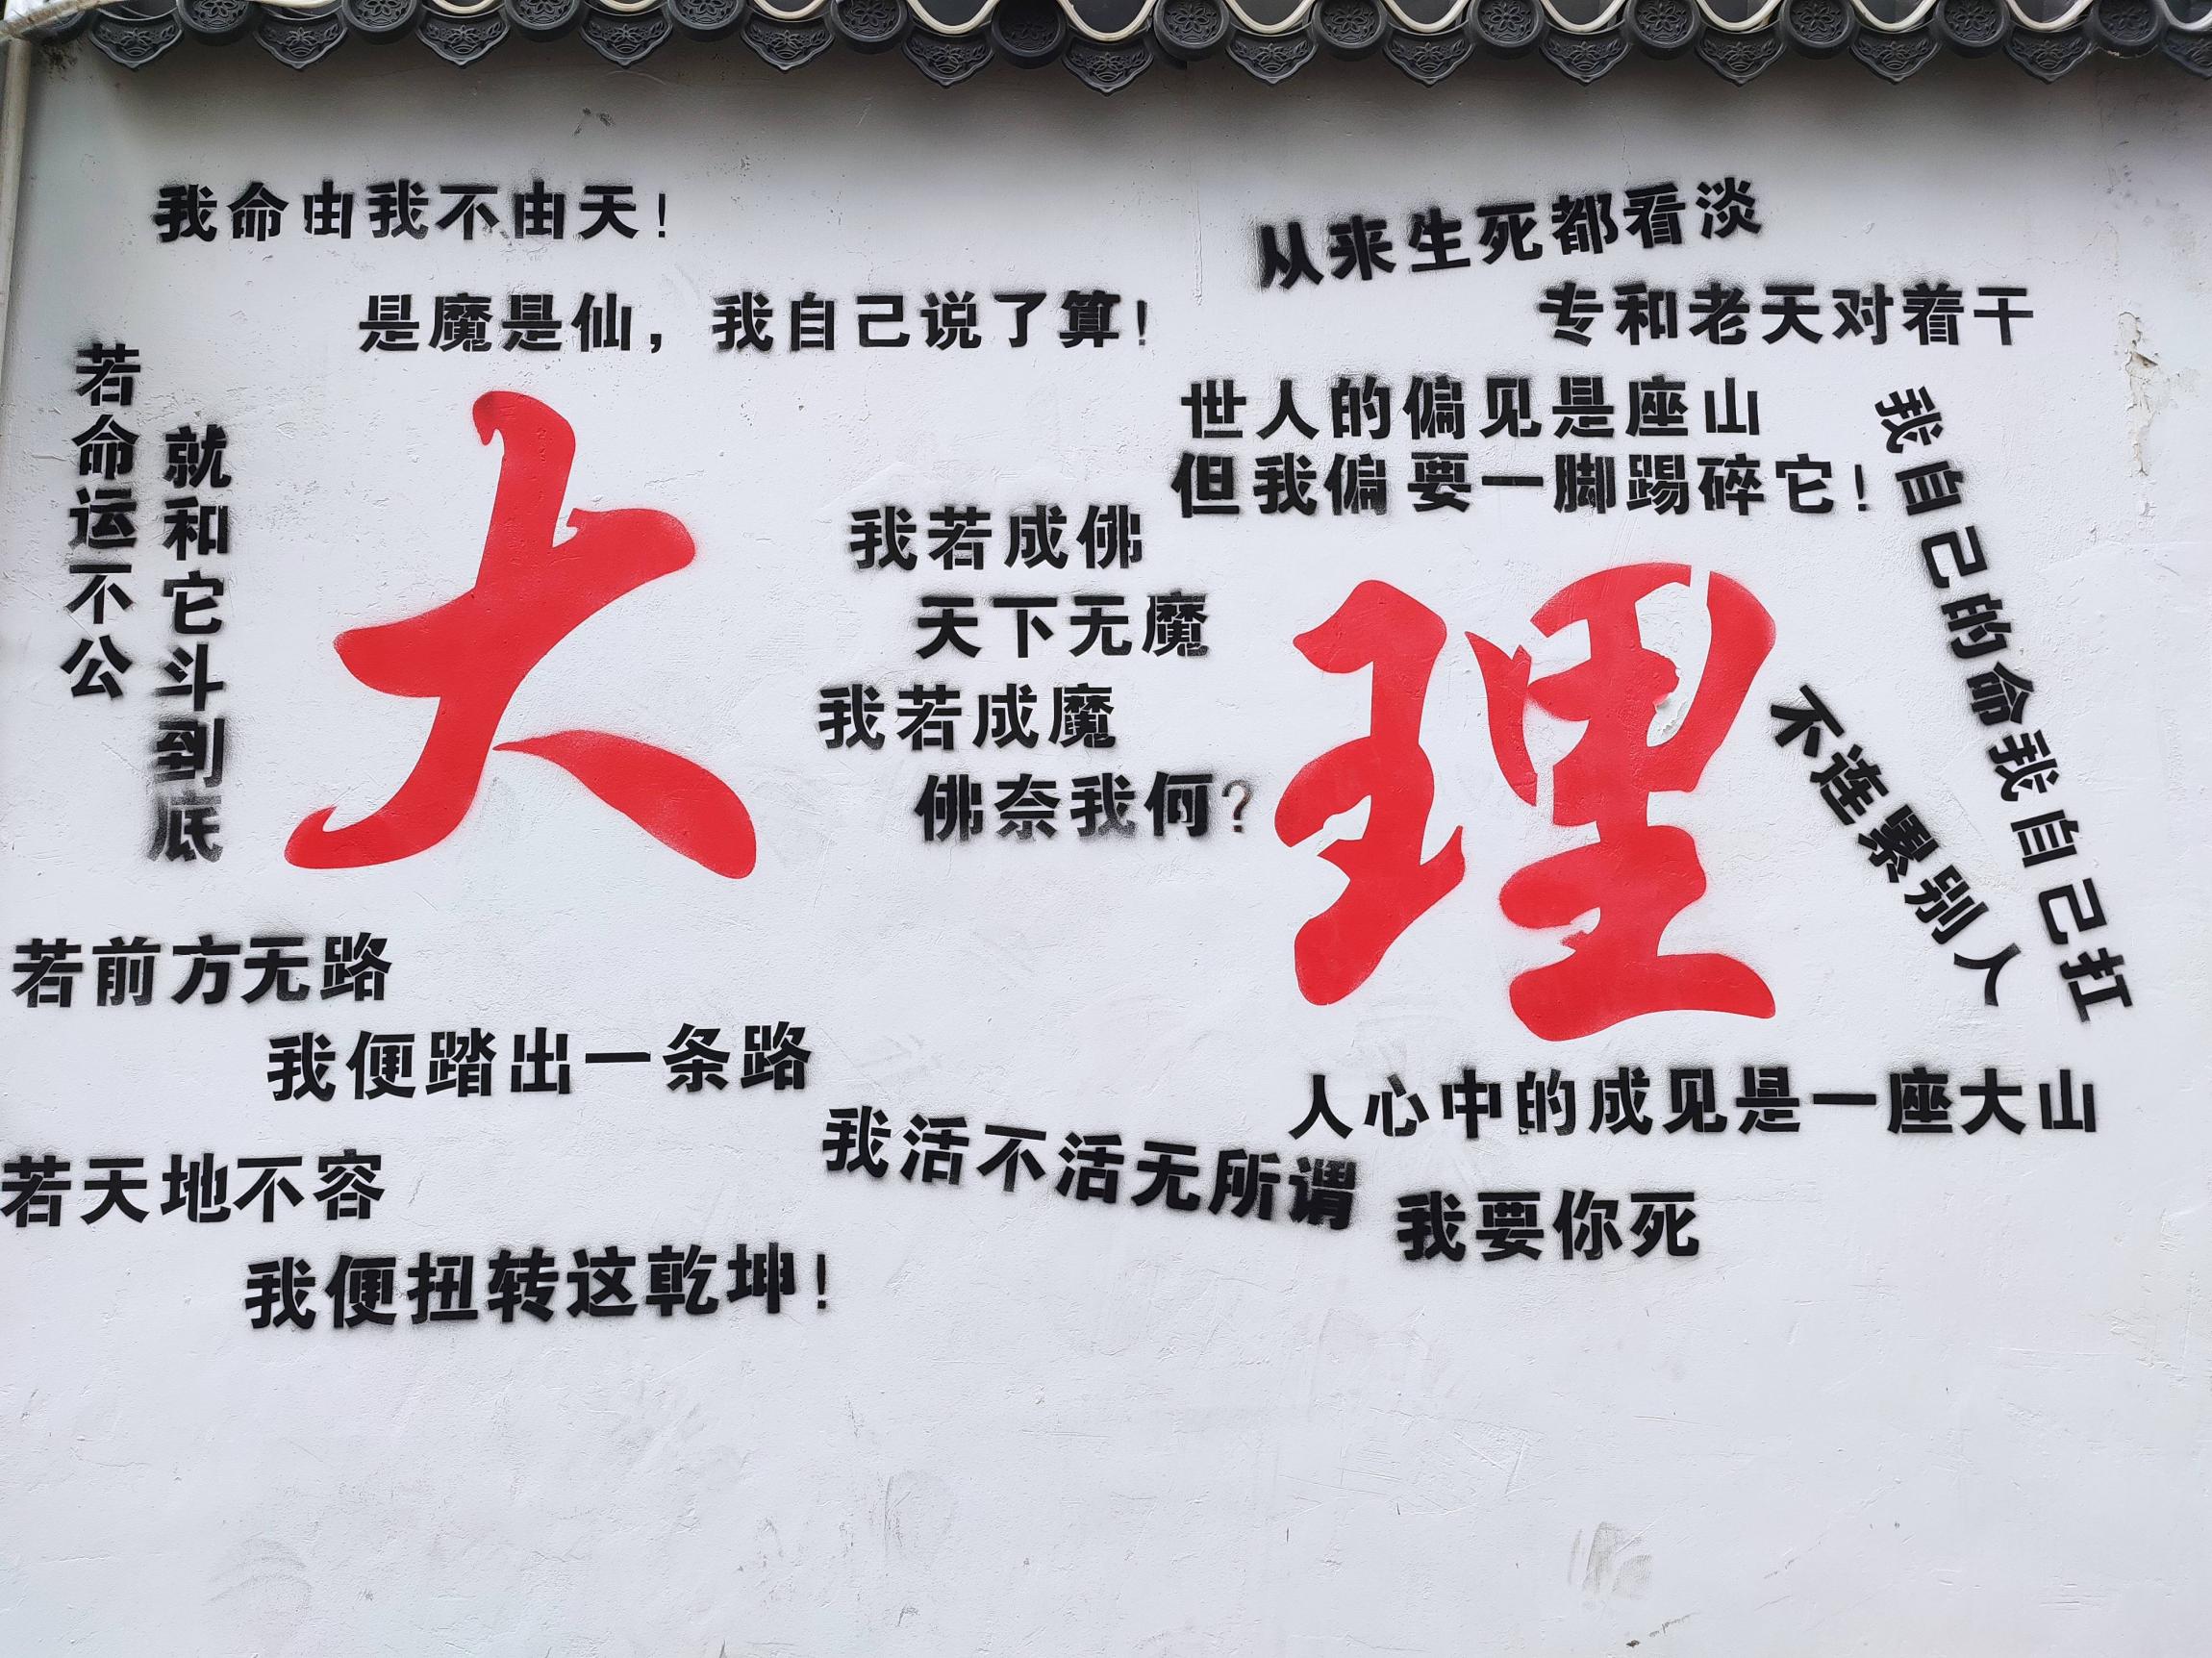 我命由我不由天!
是魔是仙，我自己说了算!
从来生死都看淡
专和老天对着干
若命运不公
就和它斗到底
大理
世人的偏见是座山
但我偏要一脚踢碎它!
我若成佛
天下无魔
我若成魔
佛奈我何?
我自己的命我自己扛
不连累别人
若前方无路
我便踏出一条路
若天地不容
我便扭转这乾坤!
人心中的成见是一座大山
我活不活无所谓
我要你死